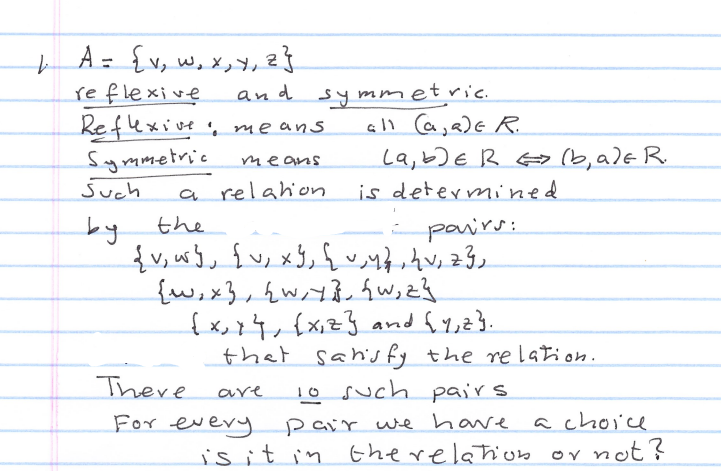 1. A = {v, w, x, y, z}
reflexive and symmetric.
Reflexive: means all (a,a) ∈ R.
Symmetric means (a,b) ∈ R ⟺ (b,a) ∈ R.
Such a relation is determined
by the pairs:
{v,w}, {v,x}, {v,y}, {v,z},
{w,x}, {w,y}, {w,z}
{x,y}, {x,z} and {y,z}.
that satisfy the relation.
There are 10 such pairs
For every pair we have a choice
is it in the relation or not?